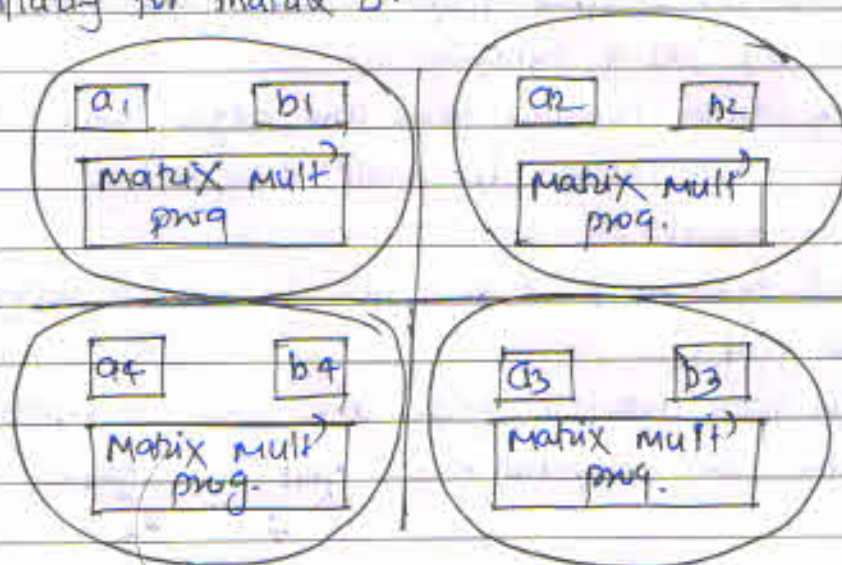 for matrix B.
a1 b1
matrix mult^n
prog
a2 b2
matrix mult^n
prog.
a4 b4
Matrix mult^n
prog.
a3 b3
matrix mult^n
prog.